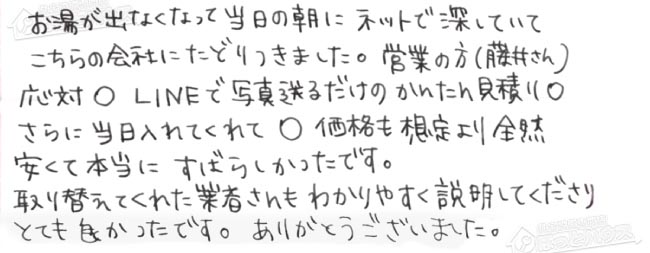 お湯が出なくなって当日の朝にネットで深していて
こちらの会社にたどりつきました。営業の方(藤井さん)
応対〇 LINEで写真送るだけのかんたん見積り〇
さらに当日入れてくれて〇 価格も想定より全然
安くて本当に すばらしかったです。
取り替えてくれた業者さんもわかりやすく説明してくださり
とても良かったです。ありがとうございました。